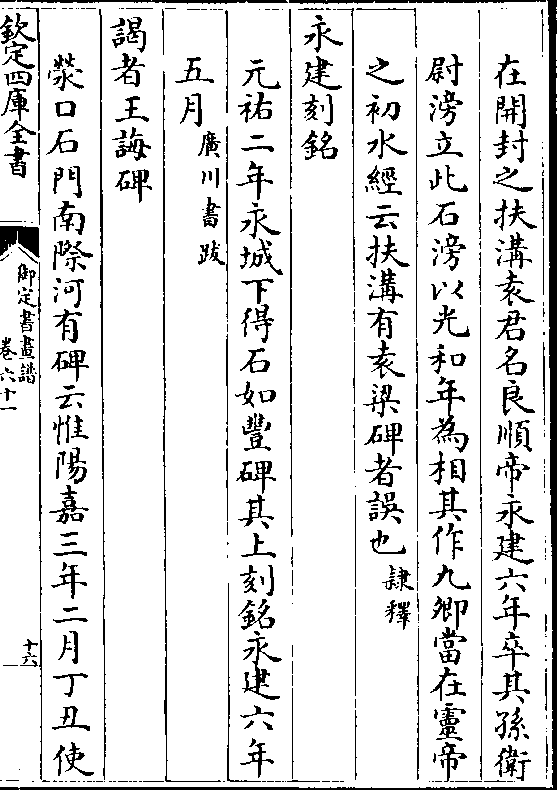 在開封之扶溝袁君名良順帝永建六年卒其孫衛
尉滂立此石滂以光和年為相其作九卿當在靈帝
之初水經云扶溝有袁梁碑者誤也隸釋
永建刻銘
元祐二年永城下得石如豐碑其上刻銘永建六年
五月廣川書跋
謁者王誨碑
滎口石門南際河有碑云惟陽嘉三年二月丁丑使
欽定四庫全書
御定書畫譜
卷六十一
十六